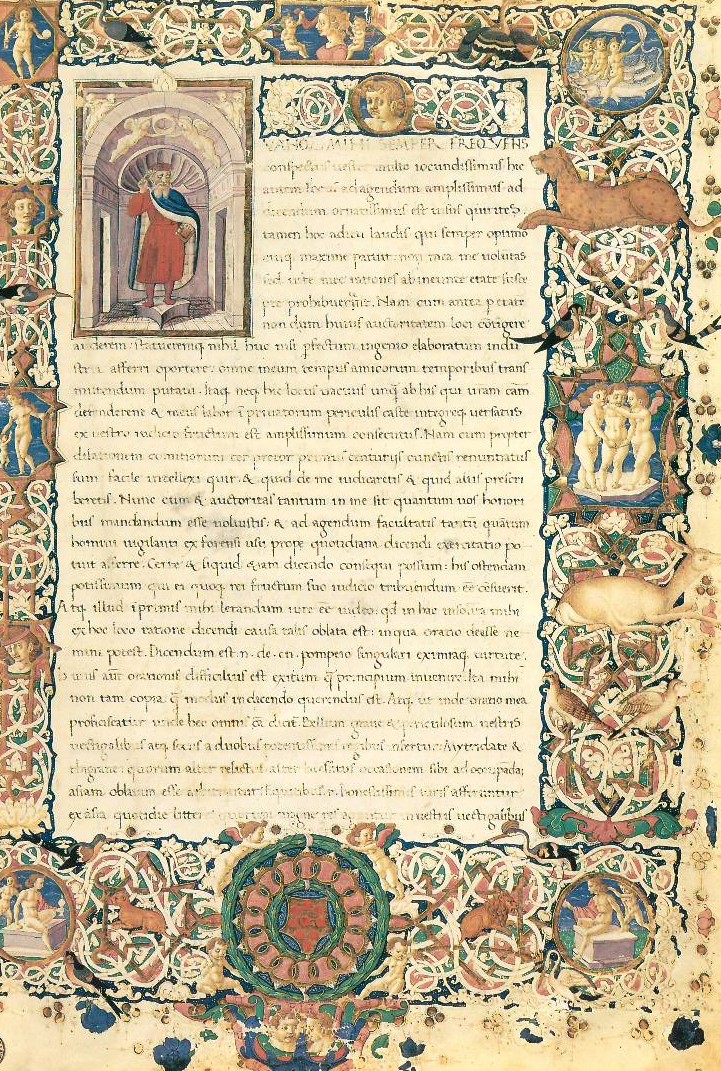 VANQ MIHI SEMPER FREQVENS
conspectus uester multo iocundissimus hic
autem locus ad agendum amplissimus ad
dicendum ornatissimus est uisus quirites.
tamen hoc aditu laudis qui semper optimo
cuiq maxime patuit: non mea me uoluntas
sed uite mee rationes ab ineunte etate susce
pte prohibuerūt. Nam cum antea p etatē
non dum huius auctoritatem loci cōtīgere
auderem: statueremq nihil huc nisi pfectum ingenio elaboratum indu
stria afferri oportere: omne meum tempus amicorum temporibus trans
mittendum putaui. Itaq neq hic locus uacuus unq̄ ab his qui uram cām
defenderent & meus labor ī priuatorum periculis caste integreq uersatus
ex uestro iudicio fructum est amplissimum consecutus. Nam cum propter
dilationem comitiorum ter pretor primus centurijs cunctis renuntiatus
sum facile intellexi quir & quid de me iudicaretis & quid alijs prescri
beretis. Nunc cum & auctoritas tantum in me sit quantum uos honori
bus mandandum esse uoluistis: & ad agendum facultatis tantū quātum
homini uigilanti ex forensi usu prope quotidiana dicendi exercitatio po
tuit afferre. Certe & siquid etiam dicendo consequi possum: his ostendam
potissimum qui ei quoq rei fructum suo iudicio tribuendum eē cēsuerīt.
Atq illud ī primis mihi letandum iure eē uideo: qd in hac insolita mihi
ex hoc loco ratione dicendi causa talis oblata est: in qua oratio deesse ne
mini potest. Dicendum est .n. de .cn. pompeio singulari eximiaq uirtute.
huius aūt orationis difficilius est exitum q̄ principium inuenire. Ita mihi
non tam copia q̄ modus in dicendo querendus est. Atq ut inde oratio mea
proficiscatur unde hec omnis cā ducit. Bellum graue & periculosum uestris
uectigalibus atq socijs a duobus potentissimis regibus infertur. Mytridate &
thigrane: quorum alter relictus alter lacessitus occasionem sibi ad occupādā
asiam oblatam esse arbitrantur. Equitibus ro. honestissimis uiris afferuntur
ex asia quotidie littere quorum magne res aguntur in uestris uectigalibus